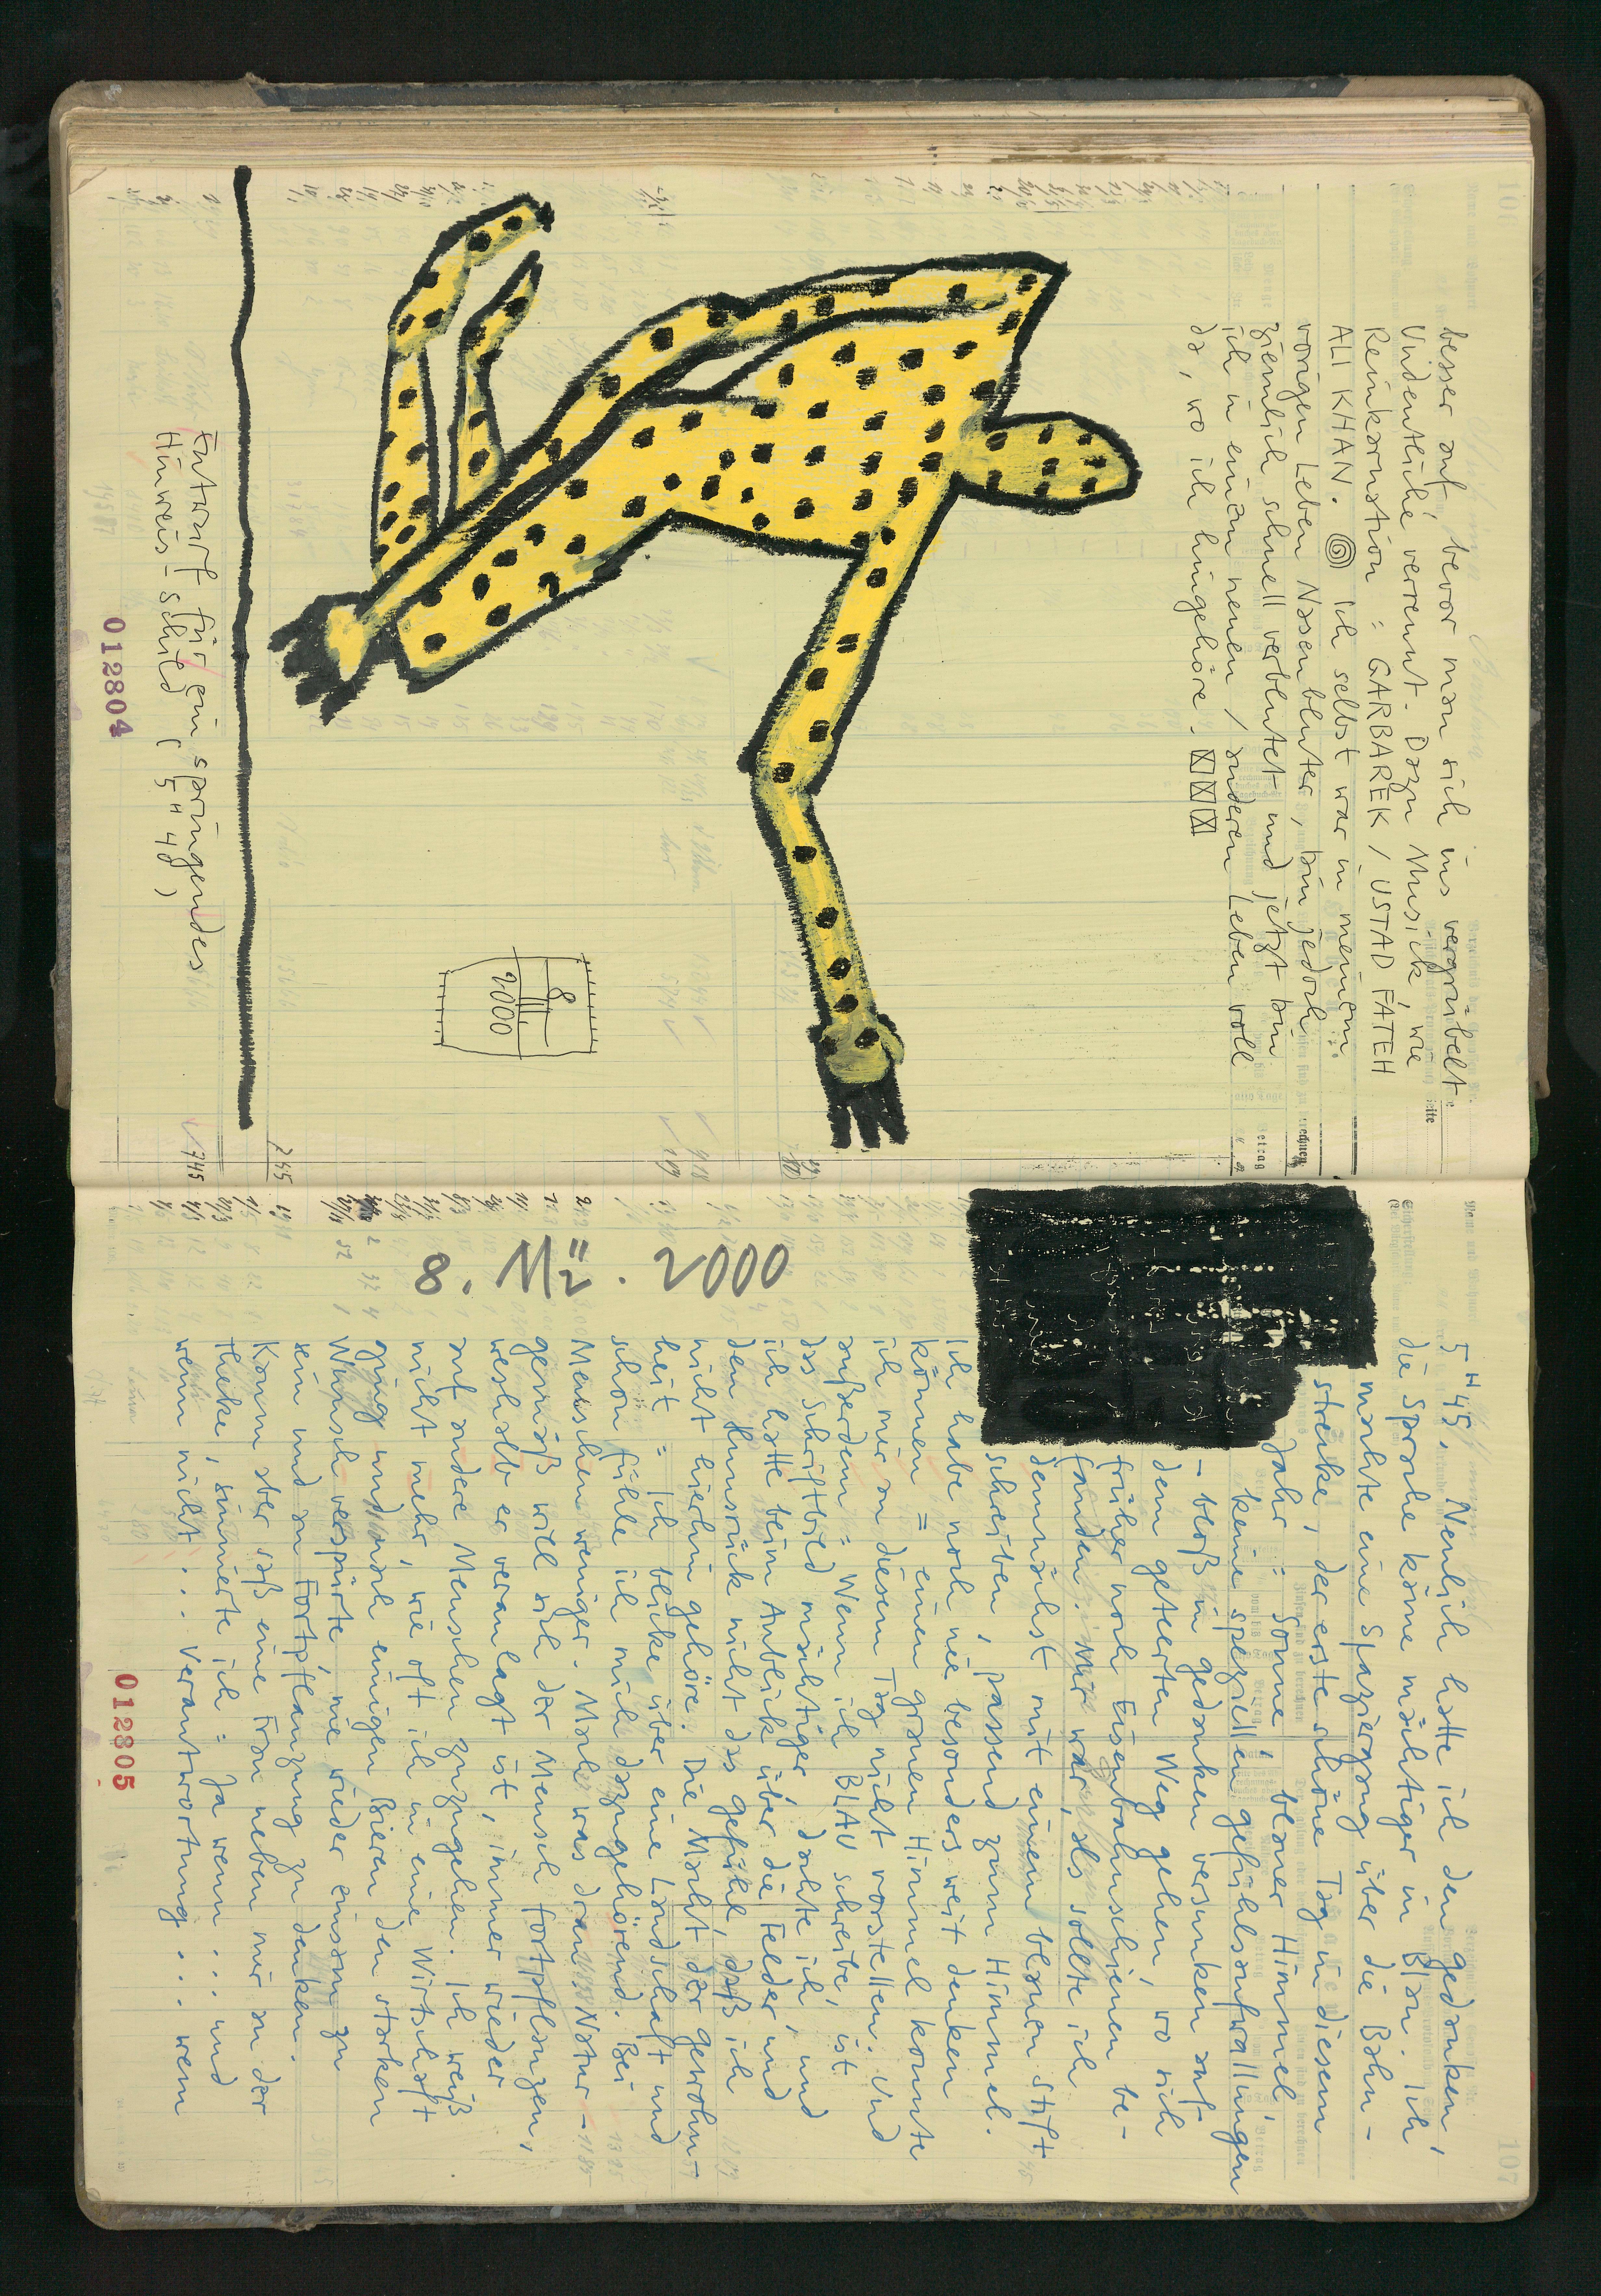 besser auf, bevor man sich ins vergrübelt
Undeutliche verrennt. Dazu Musick, wie
Reinkarnation : GARBAREK / USTAD FATEH
ALI KHAN. Ich selbst war in meinem
vorigen Leben Nasenbluter, bin jedoch
ziemlich schnell verblutet und jetzt bin
ich in einem neuen / anderen Leben voll
da, wo ich hingehöre.
8
2000
Entwurf für ein springendes
Hinweis-schild (5 H 40)
012804
745
245
8. Mz. 2000
5 H 45, Neulich hatte ich den gedanken,
die Sprache käme mächtiger in Blau. Ich
machte eine Spaziergang über die Bahn-
strecke, der erste schöne Tag in diesem
Jahr : Sonne, blauer Himmel,
keine speziellen gefühlsaufwallungen
- bloß in gedanken versunken auf
dem geteerten Weg gehen, wo sich
früher noch Eisenbahnschienen be-
fanden. Mir war, als sollte ich
demnächst mit einem blauen Stift
schreiben, passend zum Himmel.
Ich habe noch nie besonders weit denken
können = einen grauen Himmel konnte
ich mir an diesem Tag nicht vorstellen. Und
außerdem : Wenn ich BLAU schreibe, ist
das Schriftbild mächtiger, dachte ich, und
ich hatte beim Anblick über die Felder und
den Hunsrück nicht das gefühl, daß ich
nicht hierhin gehöre. Die Macht der gewohn-
heit = Ich blicke über eine Landschaft und
schon fühle ich mich dazugehörend. Bei
Menschen weniger. Mach was dran : Natur-
gemäß will sich der Mensch fortpflanzen,
weshalb er veranlagt ist, immer wieder
auf andere Menschen zuzugehen. Ich weiß
nicht mehr, wie oft ich in eine Wirtschaft
ging und nach einigen Bieren den starken
Wunsch verspürte, nie wieder einsam zu
sein und an Fortpflanzung zu denken.
Kann aber saß eine Frau neben mir an der
theke, sinnierte ich = Ja wenn ... und
wenn nicht ... Verantwortung ... wenn
012805